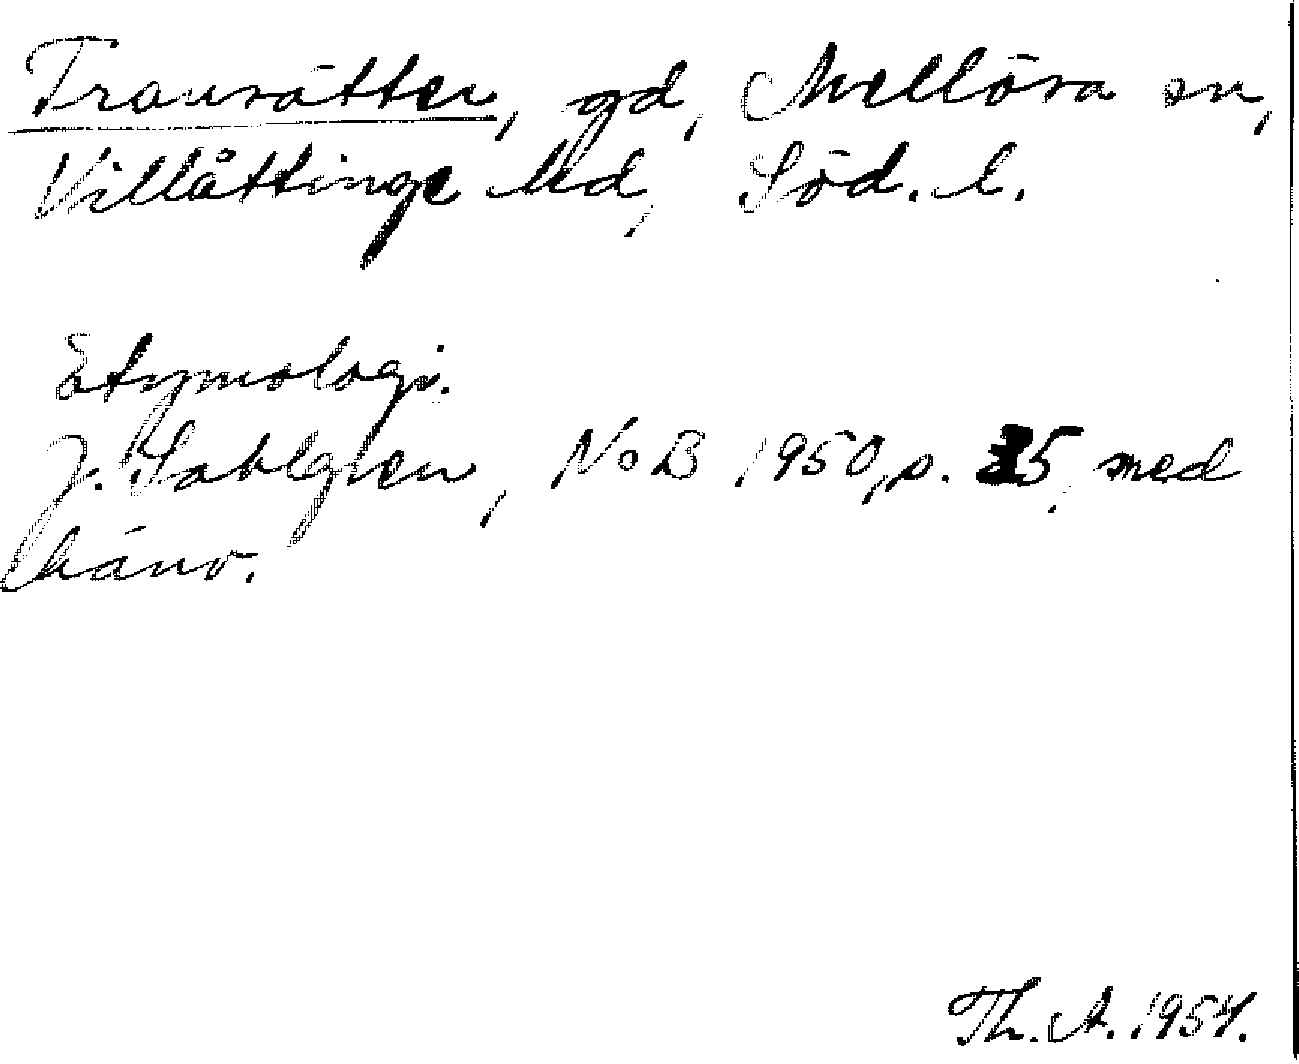 Transätter, gd, Mellösa sn,
Villåttinge hd, Söd. l.
Etymologi.
J. Sahlgren, NoB 1950, s. 35, med
hänv.
Th. A. 1954.